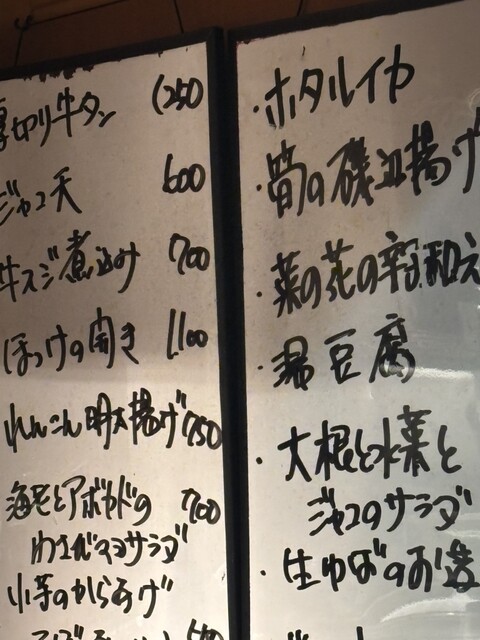 厚切り牛タン 1250
ジャコ天 600
牛スジ煮込み 700
ほっけの開き 1100
れんこん明太揚げ 750
海老とアボカドの 700
わさびマヨサラダ
小芋のからあげ
・ホタルイカ
・筍の磯辺揚げ
・菜の花の辛子和え
・湯豆腐
・大根と水菜と
ジャコのサラダ
・生ゆばのお造